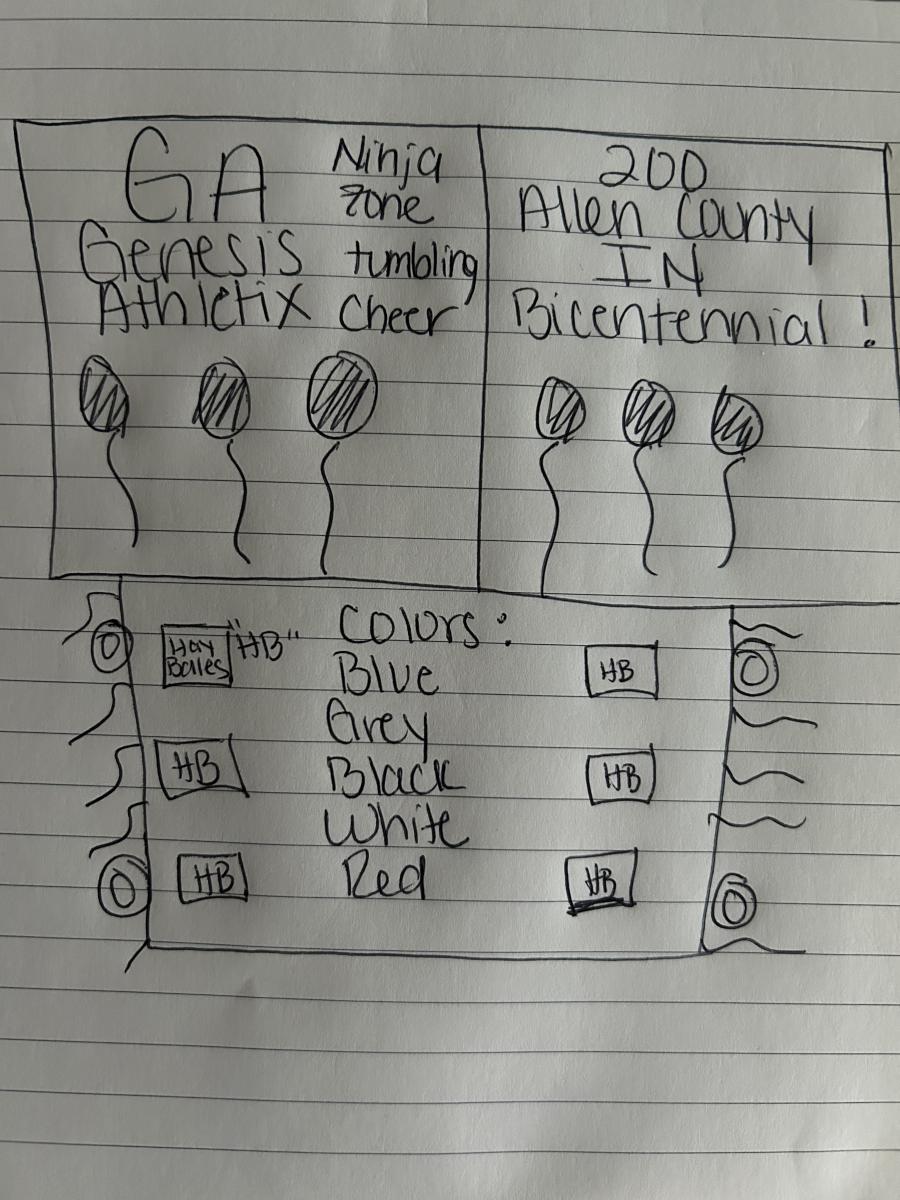 GA
Genesis
Athletix
Ninja
zone
tumbling
Cheer
200
Allen County
IN
Bicentennial!
Hay
Bales
"HB"
Colors:
Blue
Grey
Black
White
Red
HB
HB
HB
HB
HB